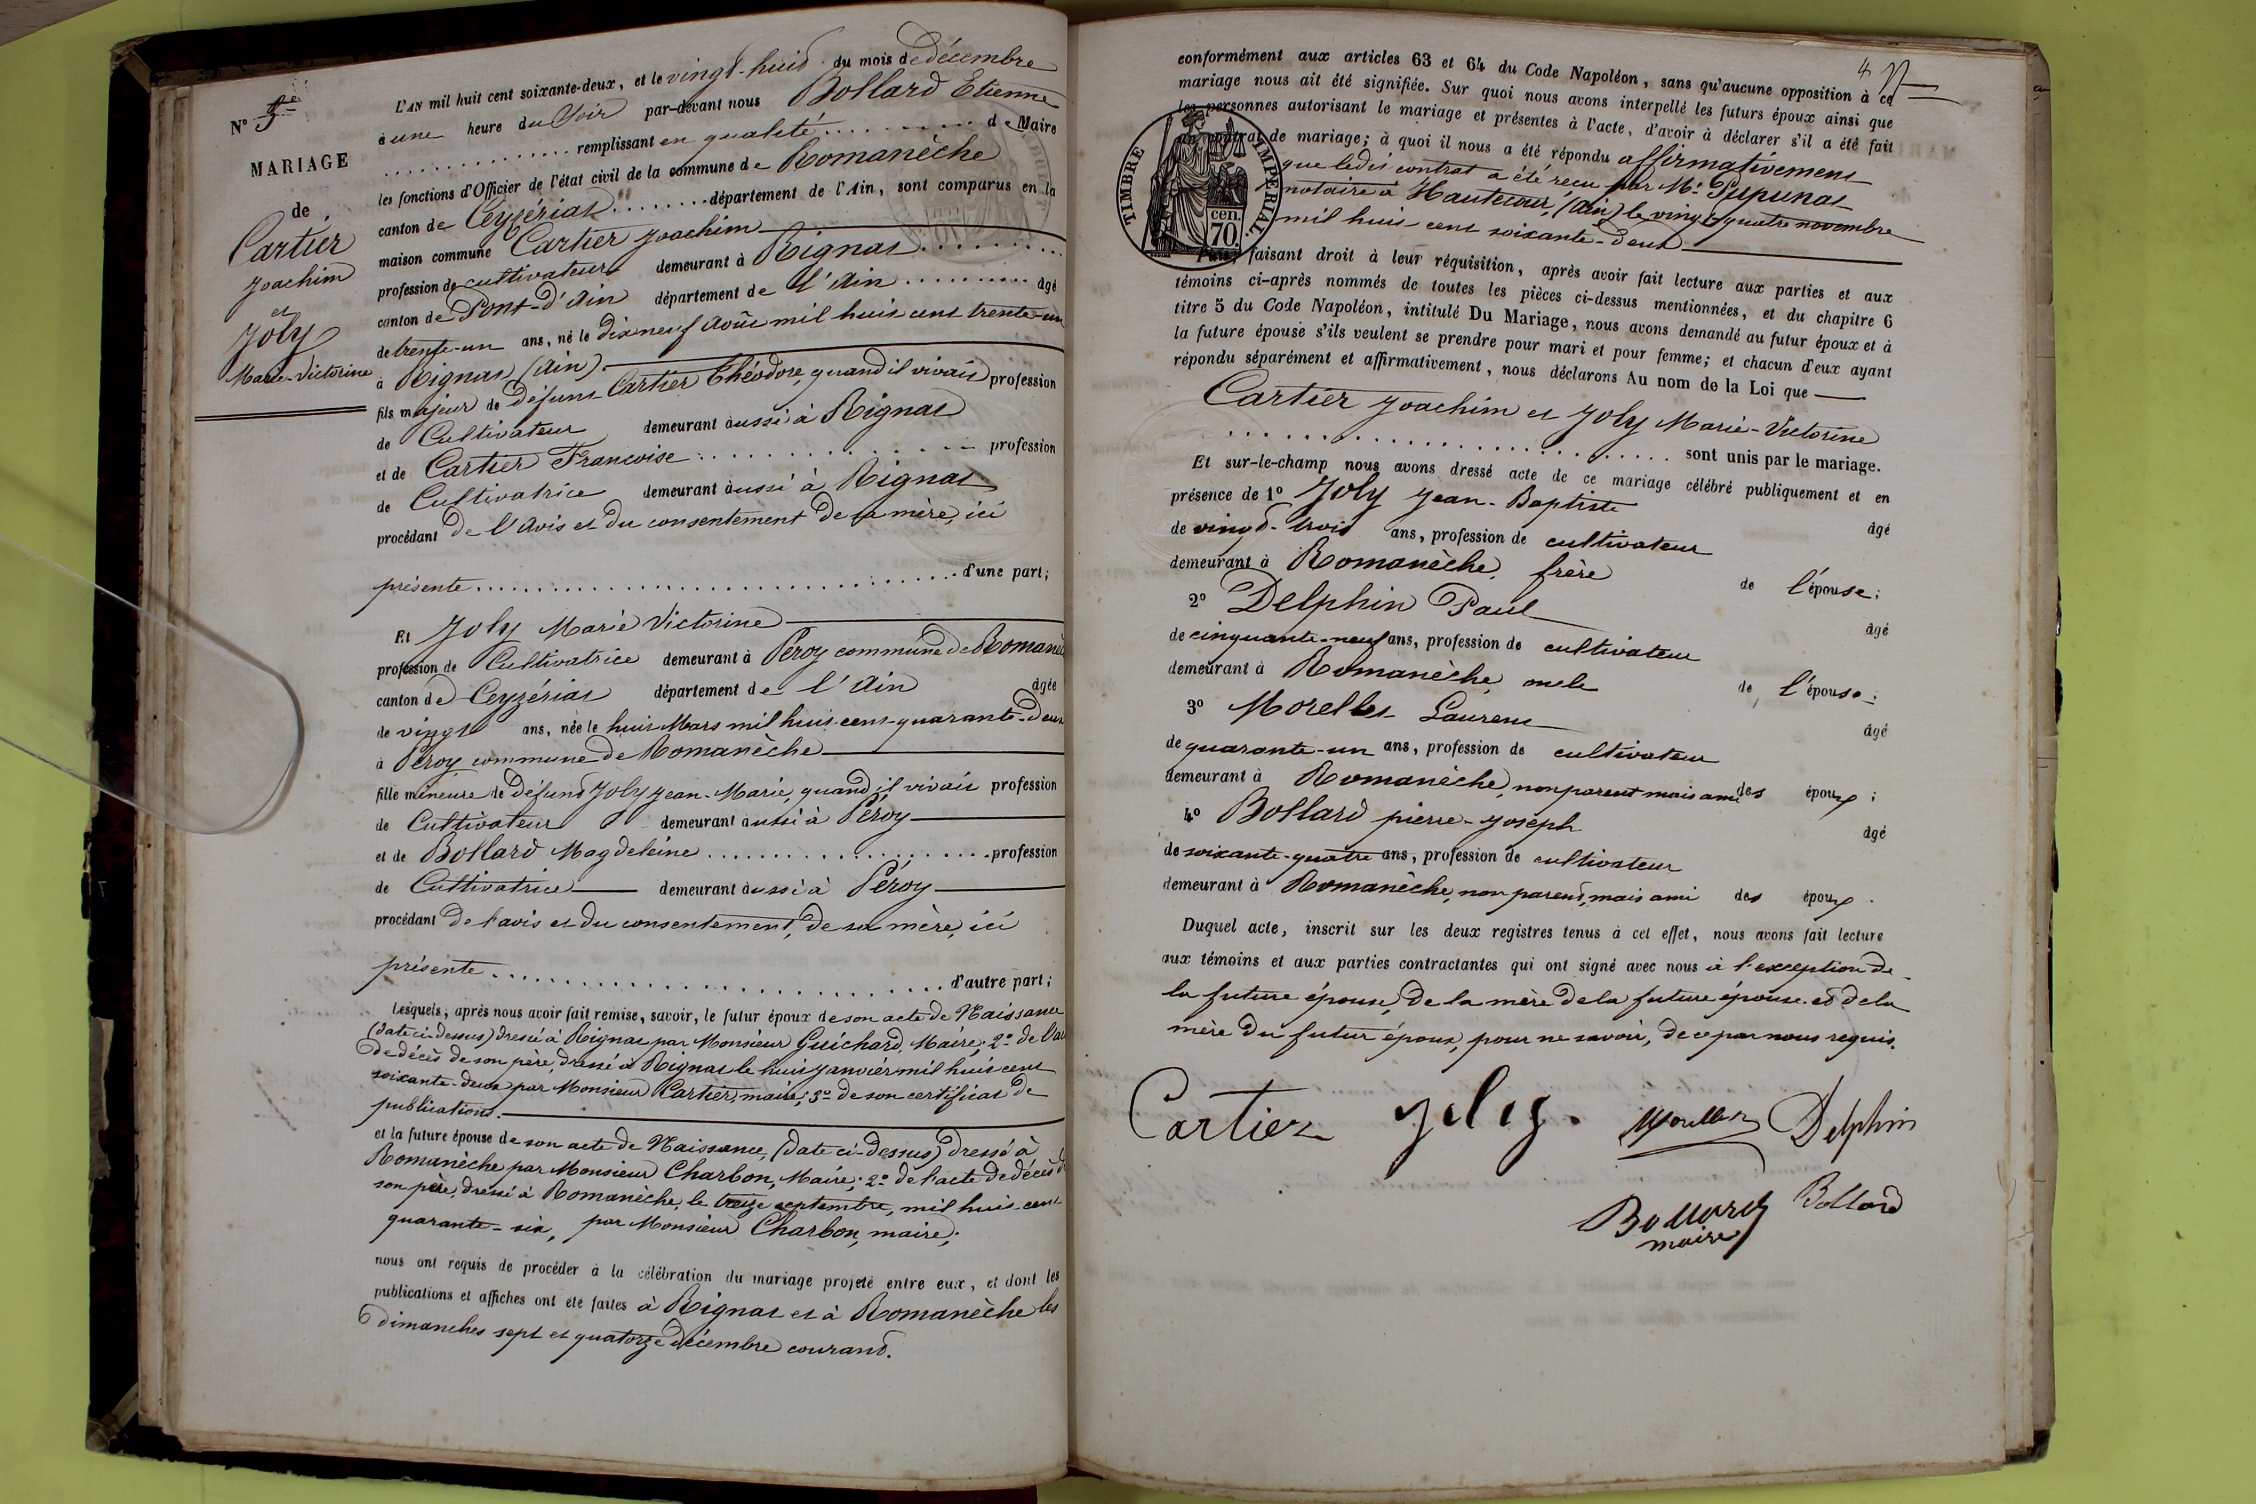 N° 5e
MARIAGE
de
Cartier
Joachim
et
Joly
Marie-Victorine
L'AN mil huit cent soixante-deux, et le vingt-huit du mois de décembre
à une heure du Soir par-devant nous Bollard Etienne
remplissant en qualité de Maire
les fonctions d'Officier de l'état civil de la commune de Romanèche
canton de Ceyzériat département de l'Ain, sont comparus en la
maison commune Cartier Joachim
profession de cultivateur demeurant à Rignat
canton de Pont-d'Ain département de l'Ain âgé
de trente-un ans, né le dix neuf Août mil huit cent trente-un
à Rignat (Ain)
fils majeur de défunt Cartier Théodore, quand il vivait profession
de Cultivateur demeurant aussi à Rignat
et de Cartier Francoise profession
de Cultivatrice demeurant aussi à Rignat
procédant de l'avis et du consentement de sa mère, ici
présente d'une part;
Et Joly Marie Victorine
profession de Cultivatrice demeurant à Péroy commune de Romanè
canton de Ceyzériat département de l'Ain âgée
de vingt ans, née le huit Mars mil huit cent quarante-deux
à Péroy commune de Romanèche
fille mineure de défunt Joly Jean-Marie, quand il vivait profession
de Cultivateur demeurant aussi à Péroy
et de Bollard Magdeleine profession
de Cultivatrice demeurant aussi à Péroy
procédant de l'avis et du consentement, de sa mère, ici
présente d'autre part;
Lesquels, après nous avoir fait remise, savoir, le futur époux de son acte de Naissance
(date ci-dessus) dressé à Rignat par Monsieur Guichard, Maire; 2° de l'ac
de décès de son père, dressé à Rignat le huit janvier mil huit cent
soixante-deux par Monsieur Cartier, maire; 3° de son certificat de
publications.
et la future épouse de son acte de Naissance, (date ci-dessus) dressé à
Romanèche par Monsieur Charbon, Maire; 2° de l'acte de décès de
son père, dressé à Romanèche, le treize septembre, mil huit cent
quarante-six, par Monsieur Charbon, maire;
nous ont requis de procéder à la célébration du mariage projeté entre eux, et dont les
publications et affiches ont été faites à Rignat et à Romanèche les
dimanches sept et quatorze décembre courant.
4
conformément aux articles 63 et 64 du Code Napoléon, sans qu'aucune opposition à ce
mariage nous ait été signifiée. Sur quoi nous avons interpellé les futurs époux ainsi que
les personnes autorisant le mariage et présentes à l'acte, d'avoir à déclarer s'il a été fait
un contrat de mariage; à quoi il nous a été répondu affirmativement
que ledit contrat a été reçu par Me
notaire à Hautecour, (Ain) le vingt-quatre novembre
mil huit-cent soixante-deux
TIMBRE IMPÉRIAL
70 cen.
faisant droit à leur réquisition, après avoir fait lecture aux parties et aux
témoins ci-après nommés de toutes les pièces ci-dessus mentionnées, et du chapitre 6
titre 5 du Code Napoléon, intitulé Du Mariage, nous avons demandé au futur époux et à
la future épouse s'ils veulent se prendre pour mari et pour femme; et chacun d'eux ayant
répondu séparément et affirmativement, nous déclarons Au nom de la Loi que
Cartier Joachim et Joly Marie-Victorine
sont unis par le mariage.
Et sur-le-champ nous avons dressé acte de ce mariage célébré publiquement et en
présence de 1° Joly Jean-Baptiste âgé
de vingt-trois ans, profession de cultivateur
demeurant à Romanèche, frère de l'épouse;
2° Delphin Paul âgé
de cinquante-neuf ans, profession de cultivateur
demeurant à Romanèche, oncle de l'épouse;
3° Morellet Laurent âgé
de quarante-un ans, profession de cultivateur
demeurant à Romanèche, non parent mais ami des époux;
4° Bollard pierre-Joseph âgé
de soixante-quatre ans, profession de cultivateur
demeurant à Romanèche, non parent, mais ami des époux.
Duquel acte, inscrit sur les deux registres tenus à cet effet, nous avons fait lecture
aux témoins et aux parties contractantes qui ont signé avec nous à l'exception de
la future épouse, de la mère de la future épouse et de la
mère du futur époux, pour ne savoir, de ce par nous requis.
Cartier Joly. Morellet Delphin
Bollard Bollard
maire